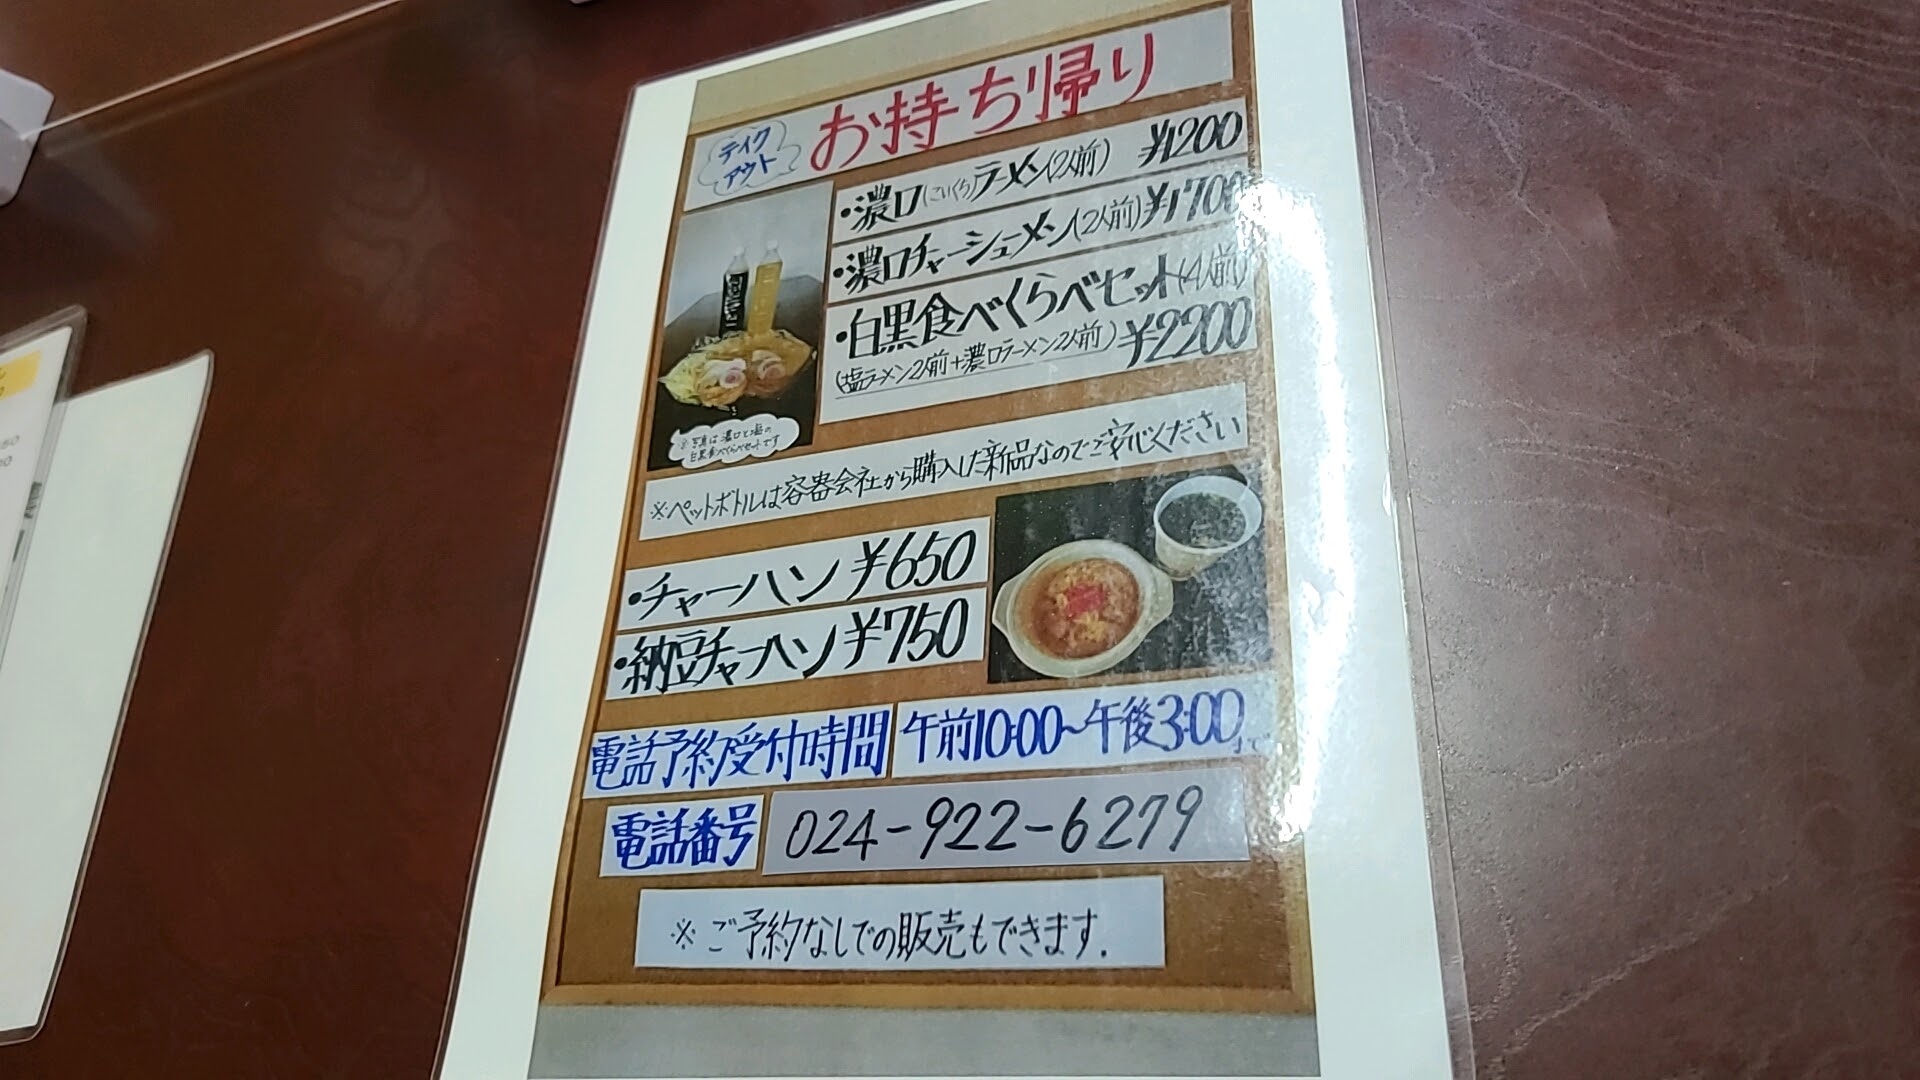 テイクアウト
お持ち帰り
・濃口(こいくち)ラーメン(2人前) ¥1200
・濃口チャーシューメン(2人前) ¥1700
・白黒食べくらべセット(4人前)
(塩ラーメン2人前+濃口ラーメン2人前) ¥2200
※写真は濃口と塩の
白黒食べくらべセットです
※ペットボトルは容器会社から購入した新品なのでご安心ください
・チャーハン ¥650
・納豆チャーハン ¥750
電話予約受付時間 午前10:00~午後3:00まで
電話番号 024-922-6279
※ご予約なしでの販売もできます.